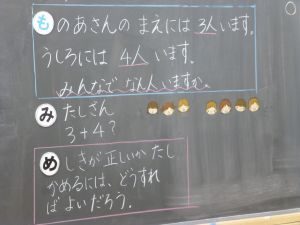 も のあさんの まえには 3人います。
うしろには 4人 います。
みんなで なん人いますか。
み たしざん
3+4?
め しきが正しいか たし
かめるには、どうすれ
ば よいだろう。